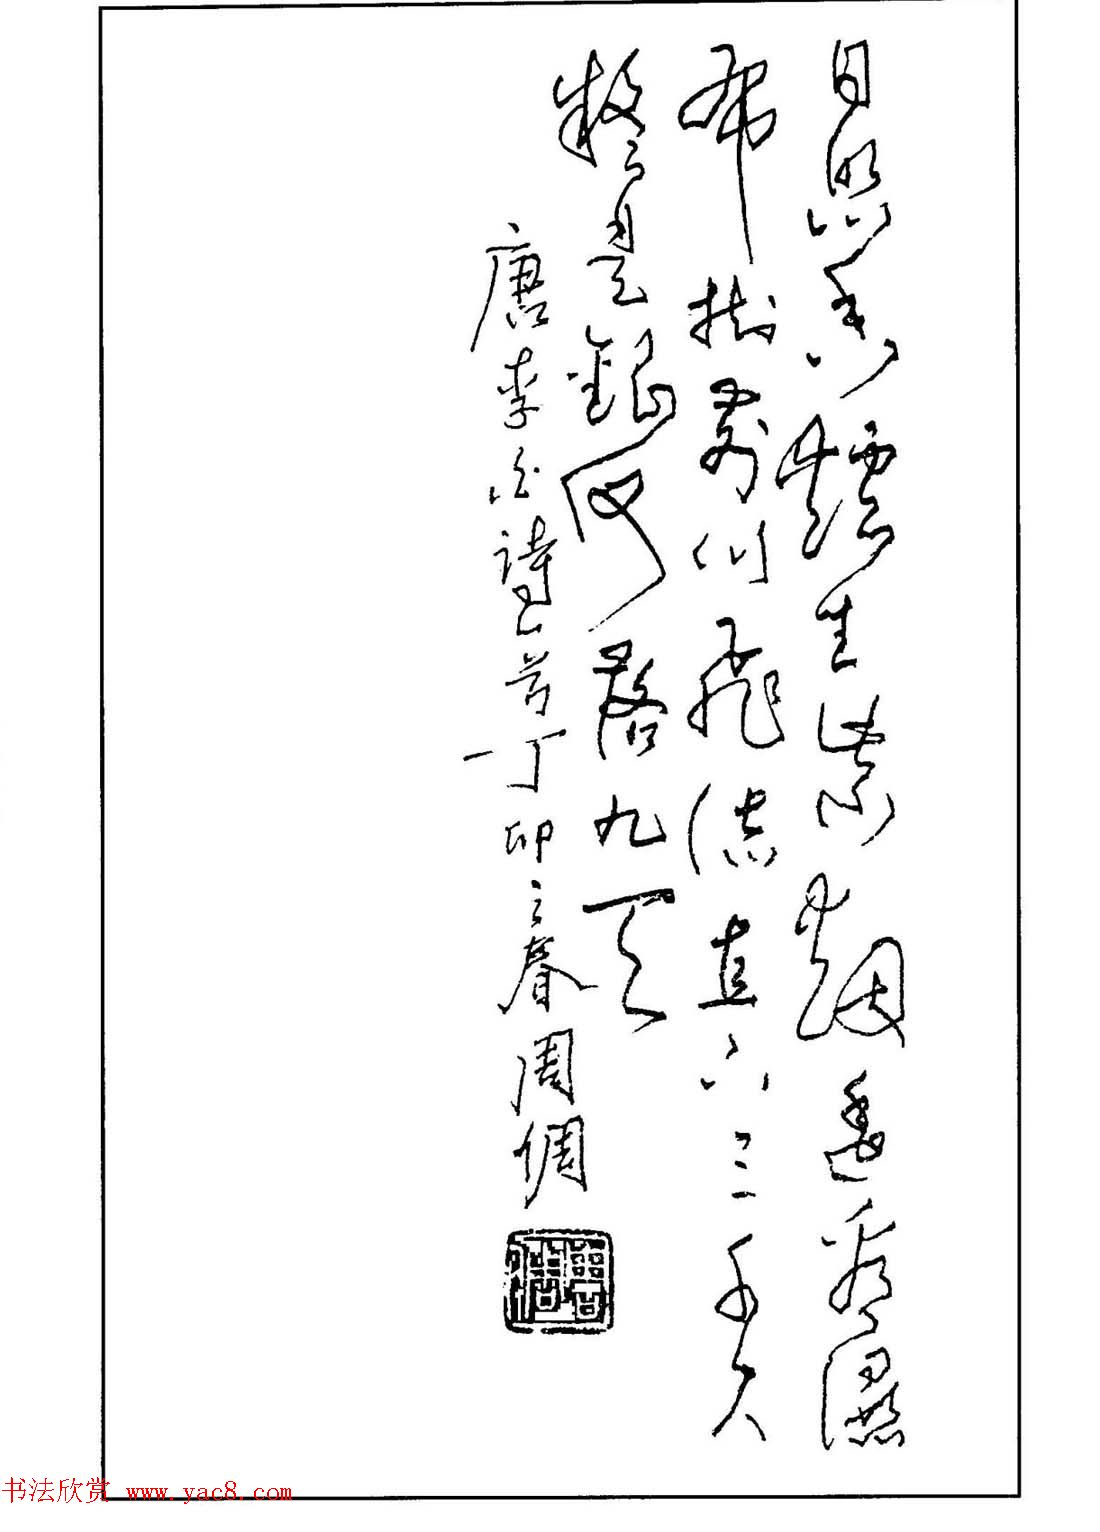 日照香爐生紫烟遙看瀑
布挂前川飛流直下三千尺
疑是銀河落九天
唐李白詩一首丁卯之春周倜
书法欣赏 www.yac8.com